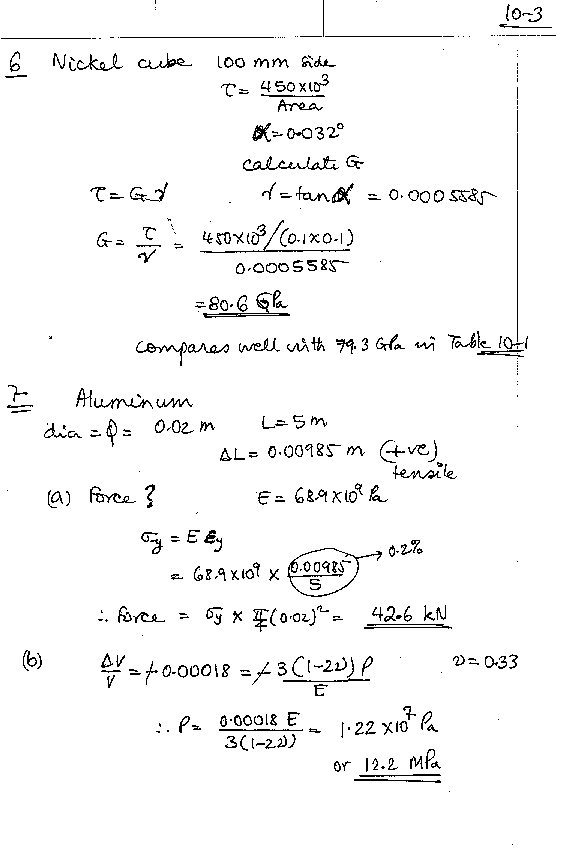 10-3
6 Nickel cube 100 mm side
τ = 450×10³ / Area
α = 0.032°
calculate G
τ = Gγ γ = tan α = 0.0005585
G = τ/γ = 450×10³/(0.1×0.1) / 0.0005585
= 80.6 GPa
compares well with 79.3 GPa in Table 10-1
7 Aluminum
dia = φ = 0.02 m L = 5 m
ΔL = 0.00985 m (+ve)
tensile
(a) Force ? E = 68.9×10⁹ Pa
σy = E εy → 0.2%
= 68.9×10⁹ × 0.00985/5
∴ Force = σy × π/4 (0.02)² = 42.6 kN
(b) ΔV/V = -0.00018 = -3(1-2ν)P/E ν = 0.33
∴ P = 0.00018 E / 3(1-2ν) = 1.22×10⁷ Pa
or 12.2 MPa